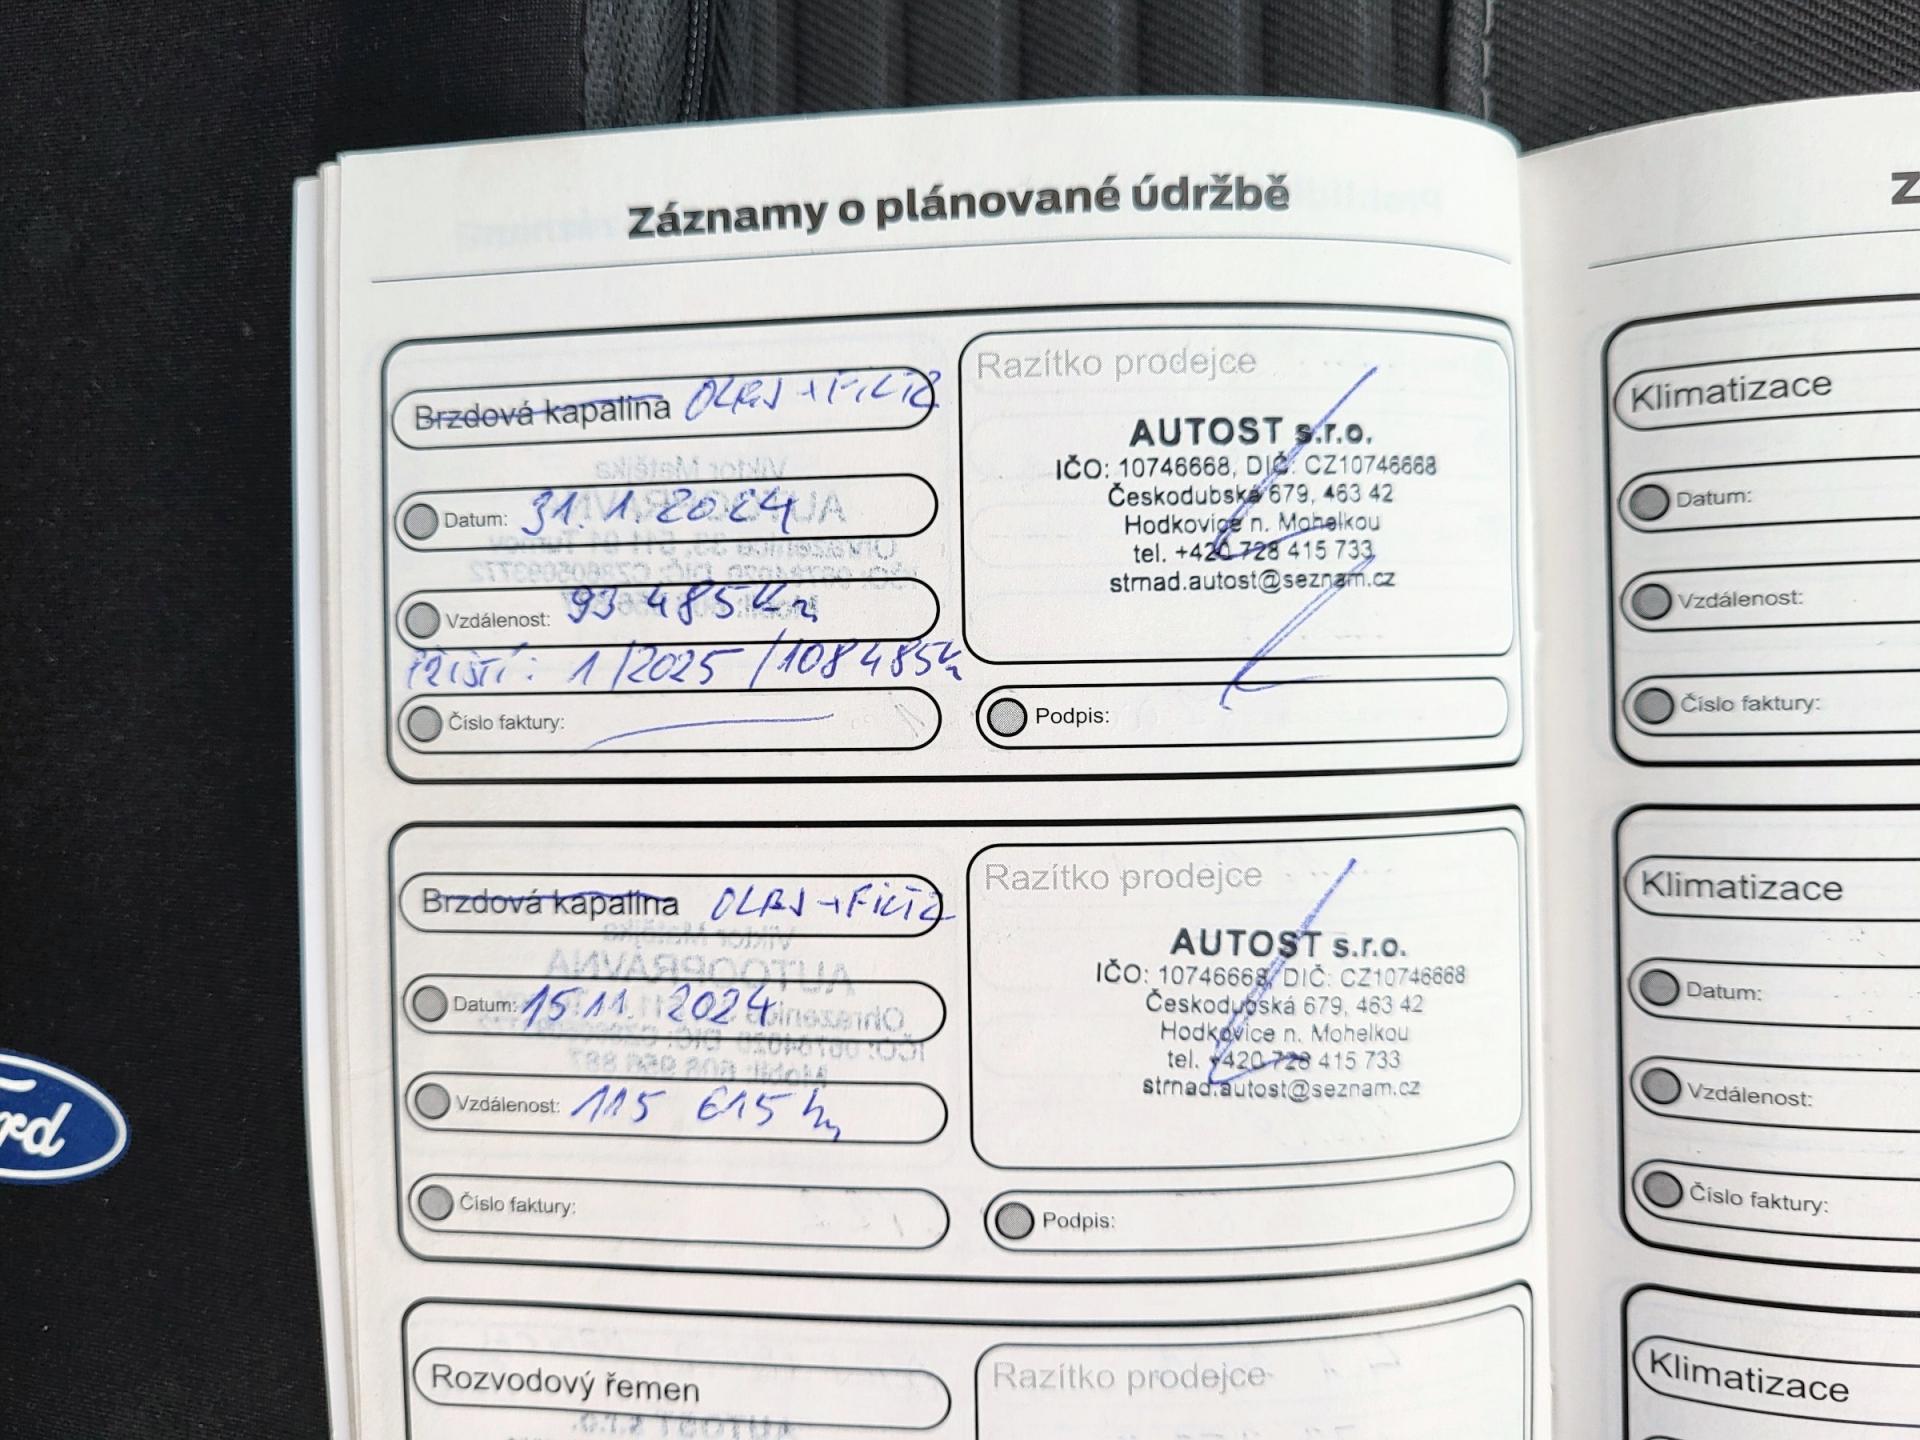 Záznamy o plánované údržbě
Brzdová kapalina OLEJ + FILTR
Datum: 31.1.2024
Vzdálenost: 93 485 Km
PŘÍŠTÍ: 1/2025 /108 485 Km
Číslo faktury:
Razítko prodejce
AUTOST s.r.o.
IČO: 10746668, DIČ: CZ10746668
Českodubská 679, 463 42
Hodkovice n. Mohelkou
tel. +420 728 415 733
strnad.autost@seznam.cz
Podpis:
Brzdová kapalina OLEJ + FILTR
Datum: 15.11. 2024
Vzdálenost: 115 615 km
Číslo faktury:
Razítko prodejce
AUTOST s.r.o.
IČO: 10746668, DIČ: CZ10746668
Českodubská 679, 463 42
Hodkovice n. Mohelkou
tel. +420 728 415 733
strnad.autost@seznam.cz
Podpis:
Rozvodový řemen
Razítko prodejce
Z
Klimatizace
Datum:
Vzdálenost:
Číslo faktury:
Klimatizace
Datum:
Vzdálenost:
Číslo faktury:
Klimatizace